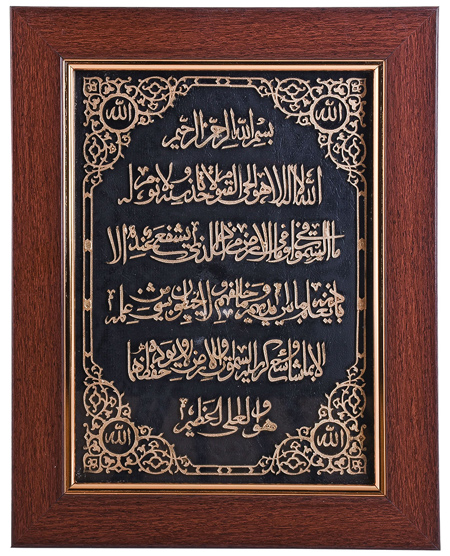 الله الله
بسم الله الرحمن الرحيم
الله لا إله إلا هو الحي القيوم لا تأخذه سنة ولا نوم له
ما في السموات وما في الأرض من ذا الذي يشفع عنده إلا
بإذنه يعلم ما بين أيديهم وما خلفهم ولا يحيطون بشيء من علمه
إلا بما شاء وسع كرسيه السموات والأرض ولا يؤوده حفظهما
وهو العلي العظيم
الله الله